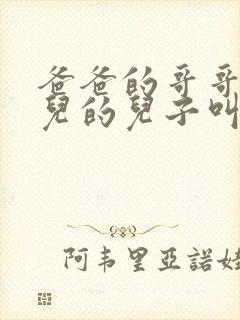 爸爸的哥哥
兒的兒子叫
阿韦里亞諾娃